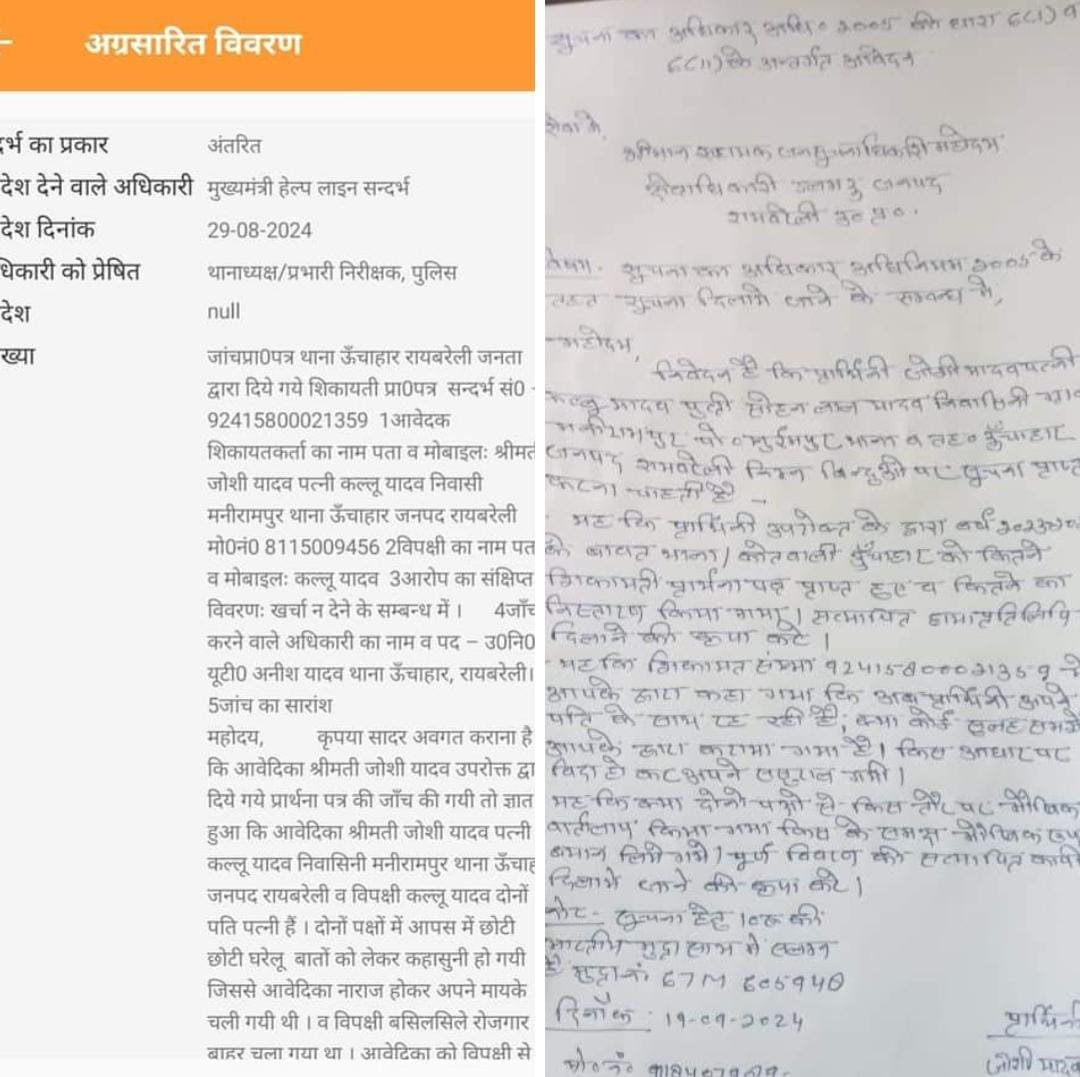 अग्रसारित विवरण
र्भ का प्रकार अंतरित
देश देने वाले अधिकारी मुख्यमंत्री हेल्प लाइन सन्दर्भ
देश दिनांक 29-08-2024
धिकारी को प्रेषित थानाध्यक्ष/प्रभारी निरीक्षक, पुलिस
देश null
ख्या जांचप्रा0पत्र थाना ऊँचाहार रायबरेली जनता
द्वारा दिये गये शिकायती प्रा0पत्र सन्दर्भ सं0 -
92415800021359 1आवेदक
शिकायतकर्ता का नाम पता व मोबाइलः श्रीमत
जोशी यादव पत्नी कल्लू यादव निवासी
मनीरामपुर थाना ऊँचाहार जनपद रायबरेली
मो0नं0 8115009456 2विपक्षी का नाम पत
व मोबाइलः कल्लू यादव 3आरोप का संक्षिप्त
विवरणः खर्चा न देने के सम्बन्ध में । 4जाँच
करने वाले अधिकारी का नाम व पद – उ0नि0
यूटी0 अनीश यादव थाना ऊँचाहार, रायबरेली।
5जांच का सारांश
महोदय, कृपया सादर अवगत कराना है
कि आवेदिका श्रीमती जोशी यादव उपरोक्त द्वा
दिये गये प्रार्थना पत्र की जाँच की गयी तो ज्ञात
हुआ कि आवेदिका श्रीमती जोशी यादव पत्नी
कल्लू यादव निवासिनी मनीरामपुर थाना ऊँचाह
जनपद रायबरेली व विपक्षी कल्लू यादव दोनों
पति पत्नी हैं । दोनों पक्षों में आपस में छोटी
छोटी घरेलू बातों को लेकर कहासुनी हो गयी
जिससे आवेदिका नाराज होकर अपने मायके
चली गयी थी । व विपक्षी बसिलसिले रोजगार
बाहर चला गया था । आवेदिका को विपक्षी से
सूचना का अधिकार अधि० 2005 की धारा 6(1) व
6(11) के अन्तर्गत आवेदन
सेवा में,
श्रीमान सहायक जनसूचनाधिकारी महोदय
क्षेत्राधिकारी डलमऊ जनपद
रायबरेली उ० प्र०.
विषय- सूचना का अधिकार अधिनियम 2005 के
तहत सूचना दिलाये जाने के सम्बन्ध में,
महोदय,
निवेदन है कि प्रार्थिनी जोशी यादव पत्नी
कल्लू यादव पुत्री सोहन लाल यादव निवासिनी ग्रा०
मनीरामपुर पो० मुईमपुर थाना व तह० ऊँचाहार
जनपद रायबरेली निम्न बिन्दुओं पर सूचना प्राप्त
करना चाहती है -
यह कि प्रार्थिनी उपरोक्त के द्वारा वर्ष 2023
के बावत थाना/कोतवाली ऊँचाहार को कितने
शिकायती प्रार्थना पत्र प्राप्त हुए व कितने का
निस्तारण किया गया। सत्यापित छायाप्रतिलिपि
दिलाने की कृपा करें।
यह कि शिकायत संख्या 92415800021359 में
आपके द्वारा कहा गया कि अब प्रार्थिनी अपने
पति के साथ रह रही है, क्या कोई सुलह समझौ
आपके द्वारा कराया गया है। किस आधार पर
विदा हो कर अपने ससुराल गयी।
यह कि क्या दोनों पक्षों से किस तौर पर मौखिक
वार्तालाप किया गया किस के समक्ष मौखिक रूप
बयान लिये गये। पूर्ण विवरण की सत्यापित कापी
दिलाये जाने की कृपा करें।
नोट- सूचना हेतु 10रू की
भारतीय मुद्रा साथ में संलग्न
है मुद्रा नं 67M 605940
दिनाँक : 19-09-2024
प्रार्थिनी
मो० नं०
जोशी यादव